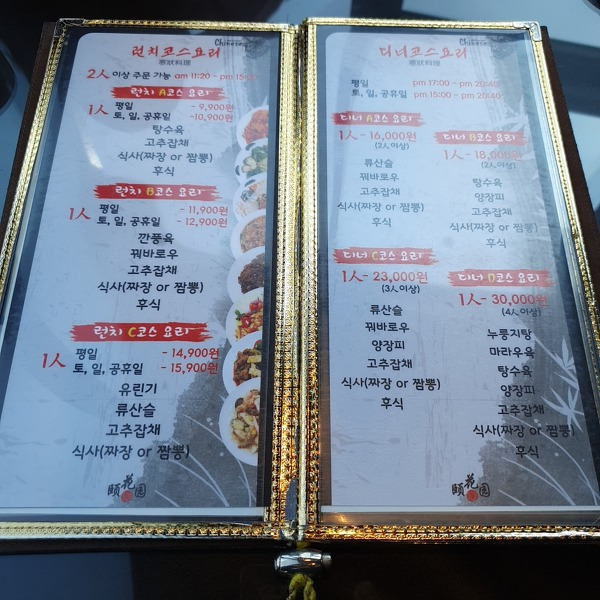 Chinese
런치코스요리
2人 이상 주문 가능 am 11:20 - pm 15:00
런치 A코스 요리
1人 평일 - 9,900원
토, 일, 공휴일 -10,900원
탕수육
고추잡채
식사(짜장 or 짬뽕)
후식
런치 B코스 요리
1人 평일 - 11,900원
토, 일, 공휴일 - 12,900원
깐풍육
꿔바로우
고추잡채
식사(짜장 or 짬뽕)
후식
런치 C코스 요리
1人 평일 - 14,900원
토, 일, 공휴일 - 15,900원
유린기
류산슬
고추잡채
식사(짜장 or 짬뽕)
후식
頤花園
Chinese
디너코스요리
평일 pm 17:00 - pm 20:40
토, 일, 공휴일 pm 15:00 - pm 20:40
디너 A코스 요리
1人 - 16,000원
(2人이상)
류산슬
꿔바로우
고추잡채
식사(짜장 or 짬뽕)
후식
디너 B코스 요리
1人 - 18,000원
(2人이상)
탕수육
양장피
고추잡채
식사(짜장 or 짬뽕)
후식
디너 C코스 요리
1人 - 23,000원
(3人이상)
류산슬
꿔바로우
양장피
고추잡채
식사(짜장 or 짬뽕)
후식
디너 D코스 요리
1人 - 30,000원
(4人이상)
누룽지탕
마라우육
탕수육
양장피
고추잡채
식사(짜장 or 짬뽕)
후식
頤花園